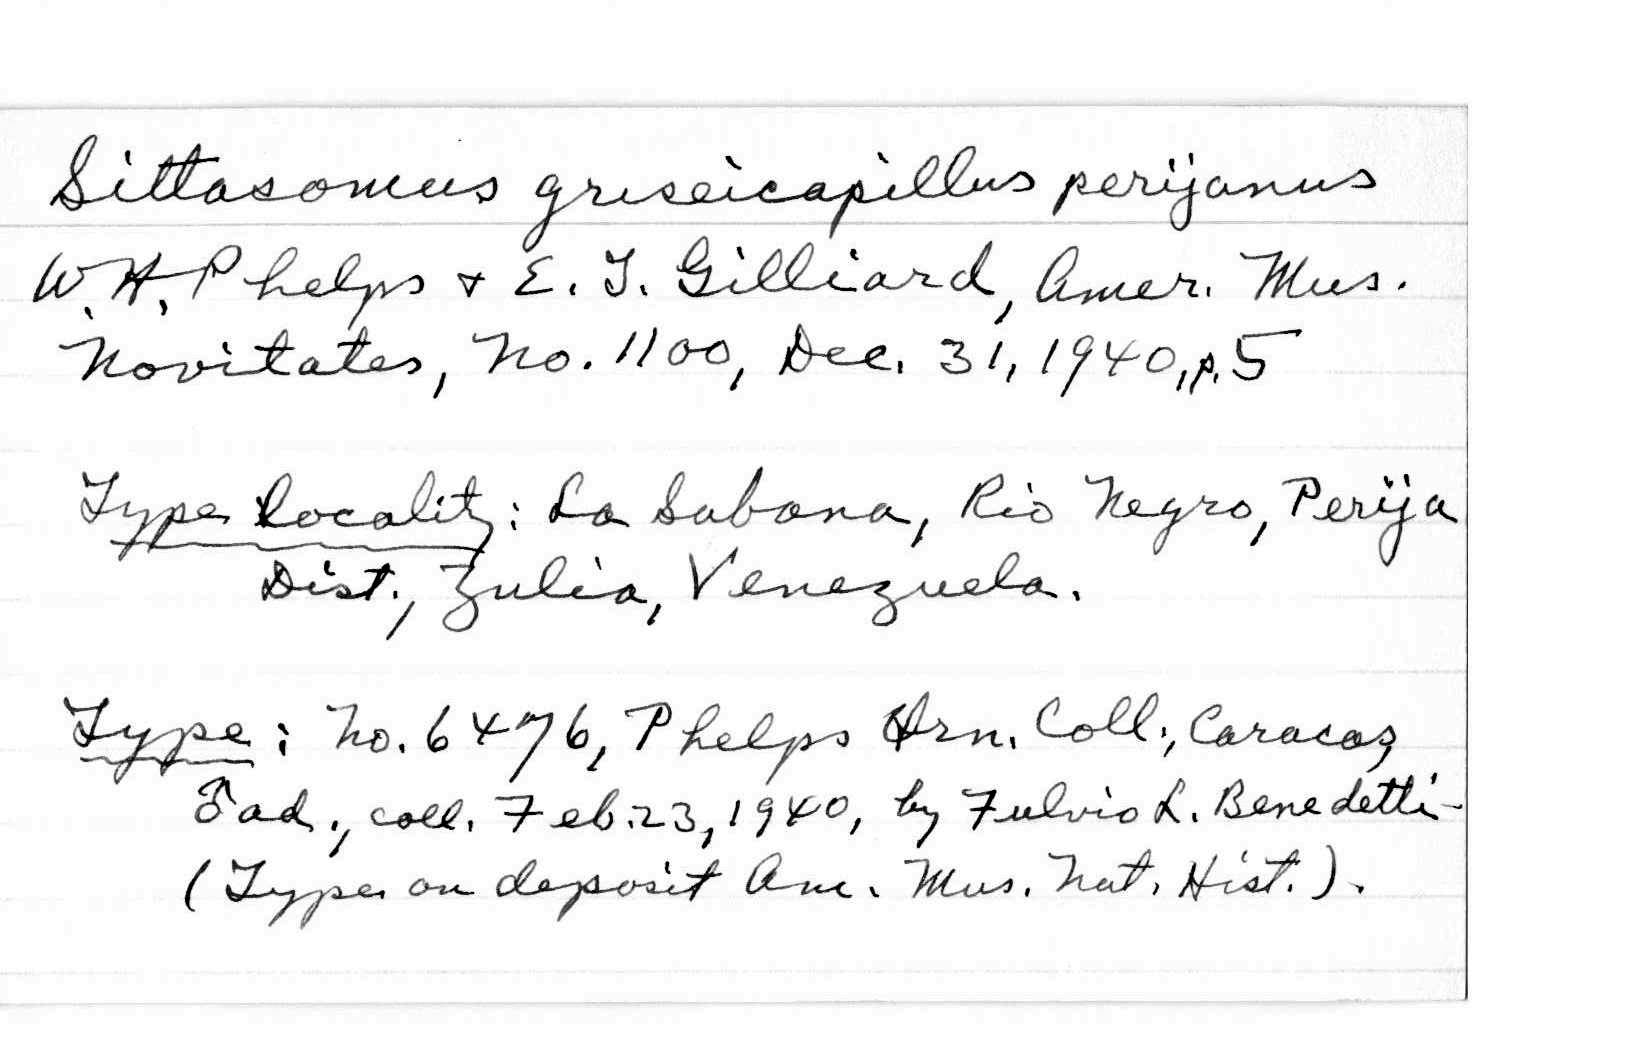 Sittasomus griseicapillus perijanus
W. H. Phelps & E. T. Gilliard, Amer. Mus.
Novitates, No. 1100, Dec. 31, 1940, p. 5
Type locality: La Sabana, Rio Negro, Perija
Dist., Zulia, Venezuela.
Type: No. 6476, Phelps Orn. Coll., Caracas,
♂ ad., coll. Feb. 23, 1940, by Fulvio L. Benedetti-
(Type on deposit Am. Mus. Nat. Hist.).